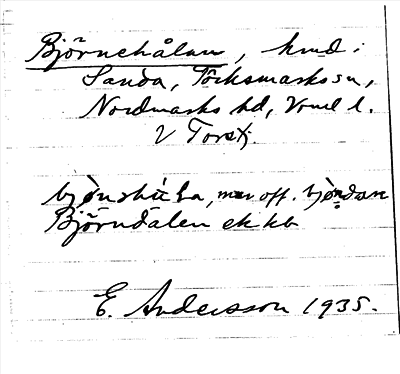 Björnehålan, hmd i
Sanda, Töcksmarks sn,
Nordmarks hd, Vrml l.
V Torstj.
mer off.
Björndalen ek kb
E. Andersson 1935.